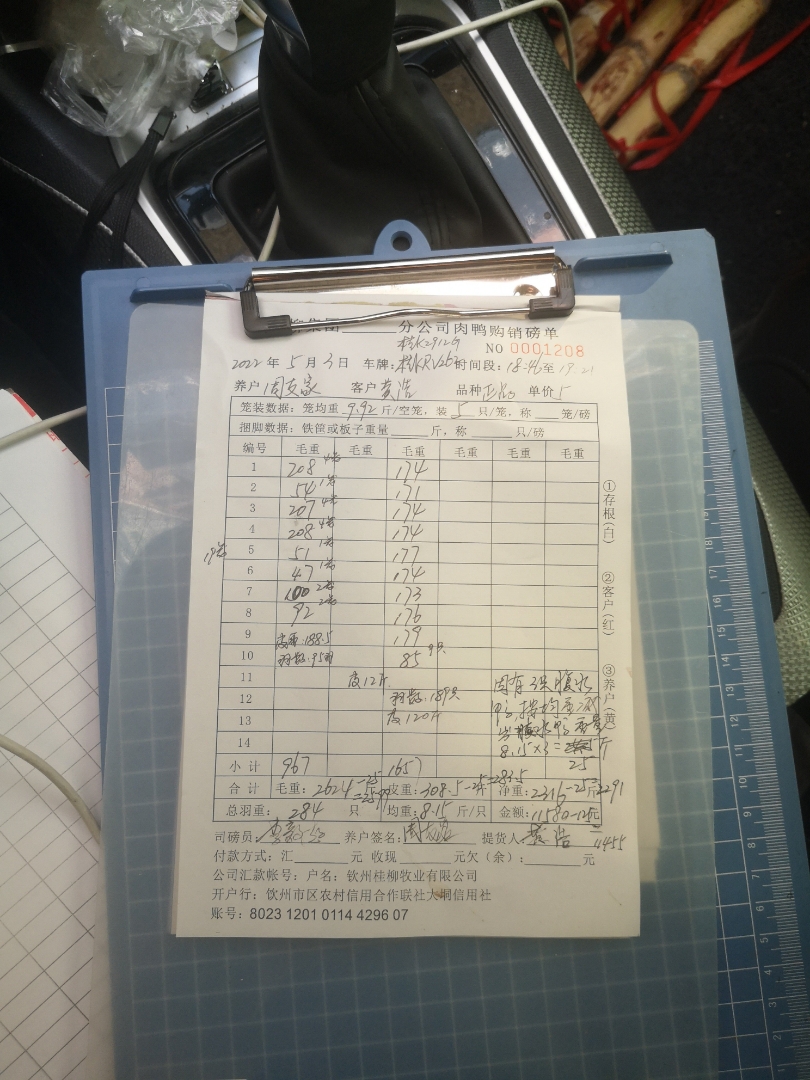 分公司肉鸭购销磅单
桂K2912G
NO 0001208
2022年5月3日 车牌: 时间段:18:46至19:21
养户 客户 黄浩 品种 单价5
笼装数据：笼均重9.92斤/空笼，装5只/笼，称 笼/磅
捆脚数据：铁筐或板子重量 斤，称 只/磅
编号 毛重 毛重 毛重 毛重 毛重 毛重
1 208 4笼 174
2 54 1笼 171
3 207 4笼 174
4 208 4笼 174
5 51 1笼 177
6 47 1笼 174
7 100 2笼 173
8 92 2笼 176
9 皮重:188.5 179
10 羽数:95羽 85 9只
11 皮12斤
12 羽数:189只
13 皮120斤
14 8.15×3= 斤
25
小计 967 1657
合计 毛重:2624-25=2599 皮重:308.5-25=283.5 净重:2316-25=2291
总羽重:284只 均重:8.15斤/只 金额:11580-125元
11455
司磅员: 养户签名: 提货人: 黄浩
付款方式：汇 元 收现 元欠（余）： 元
公司汇款帐号：户名：钦州桂柳牧业有限公司
开户行：钦州市区农村信用合作联社大垌信用社
账号：8023 1201 0114 4296 07
①存根(白)
②客户(红)
③养户(黄)